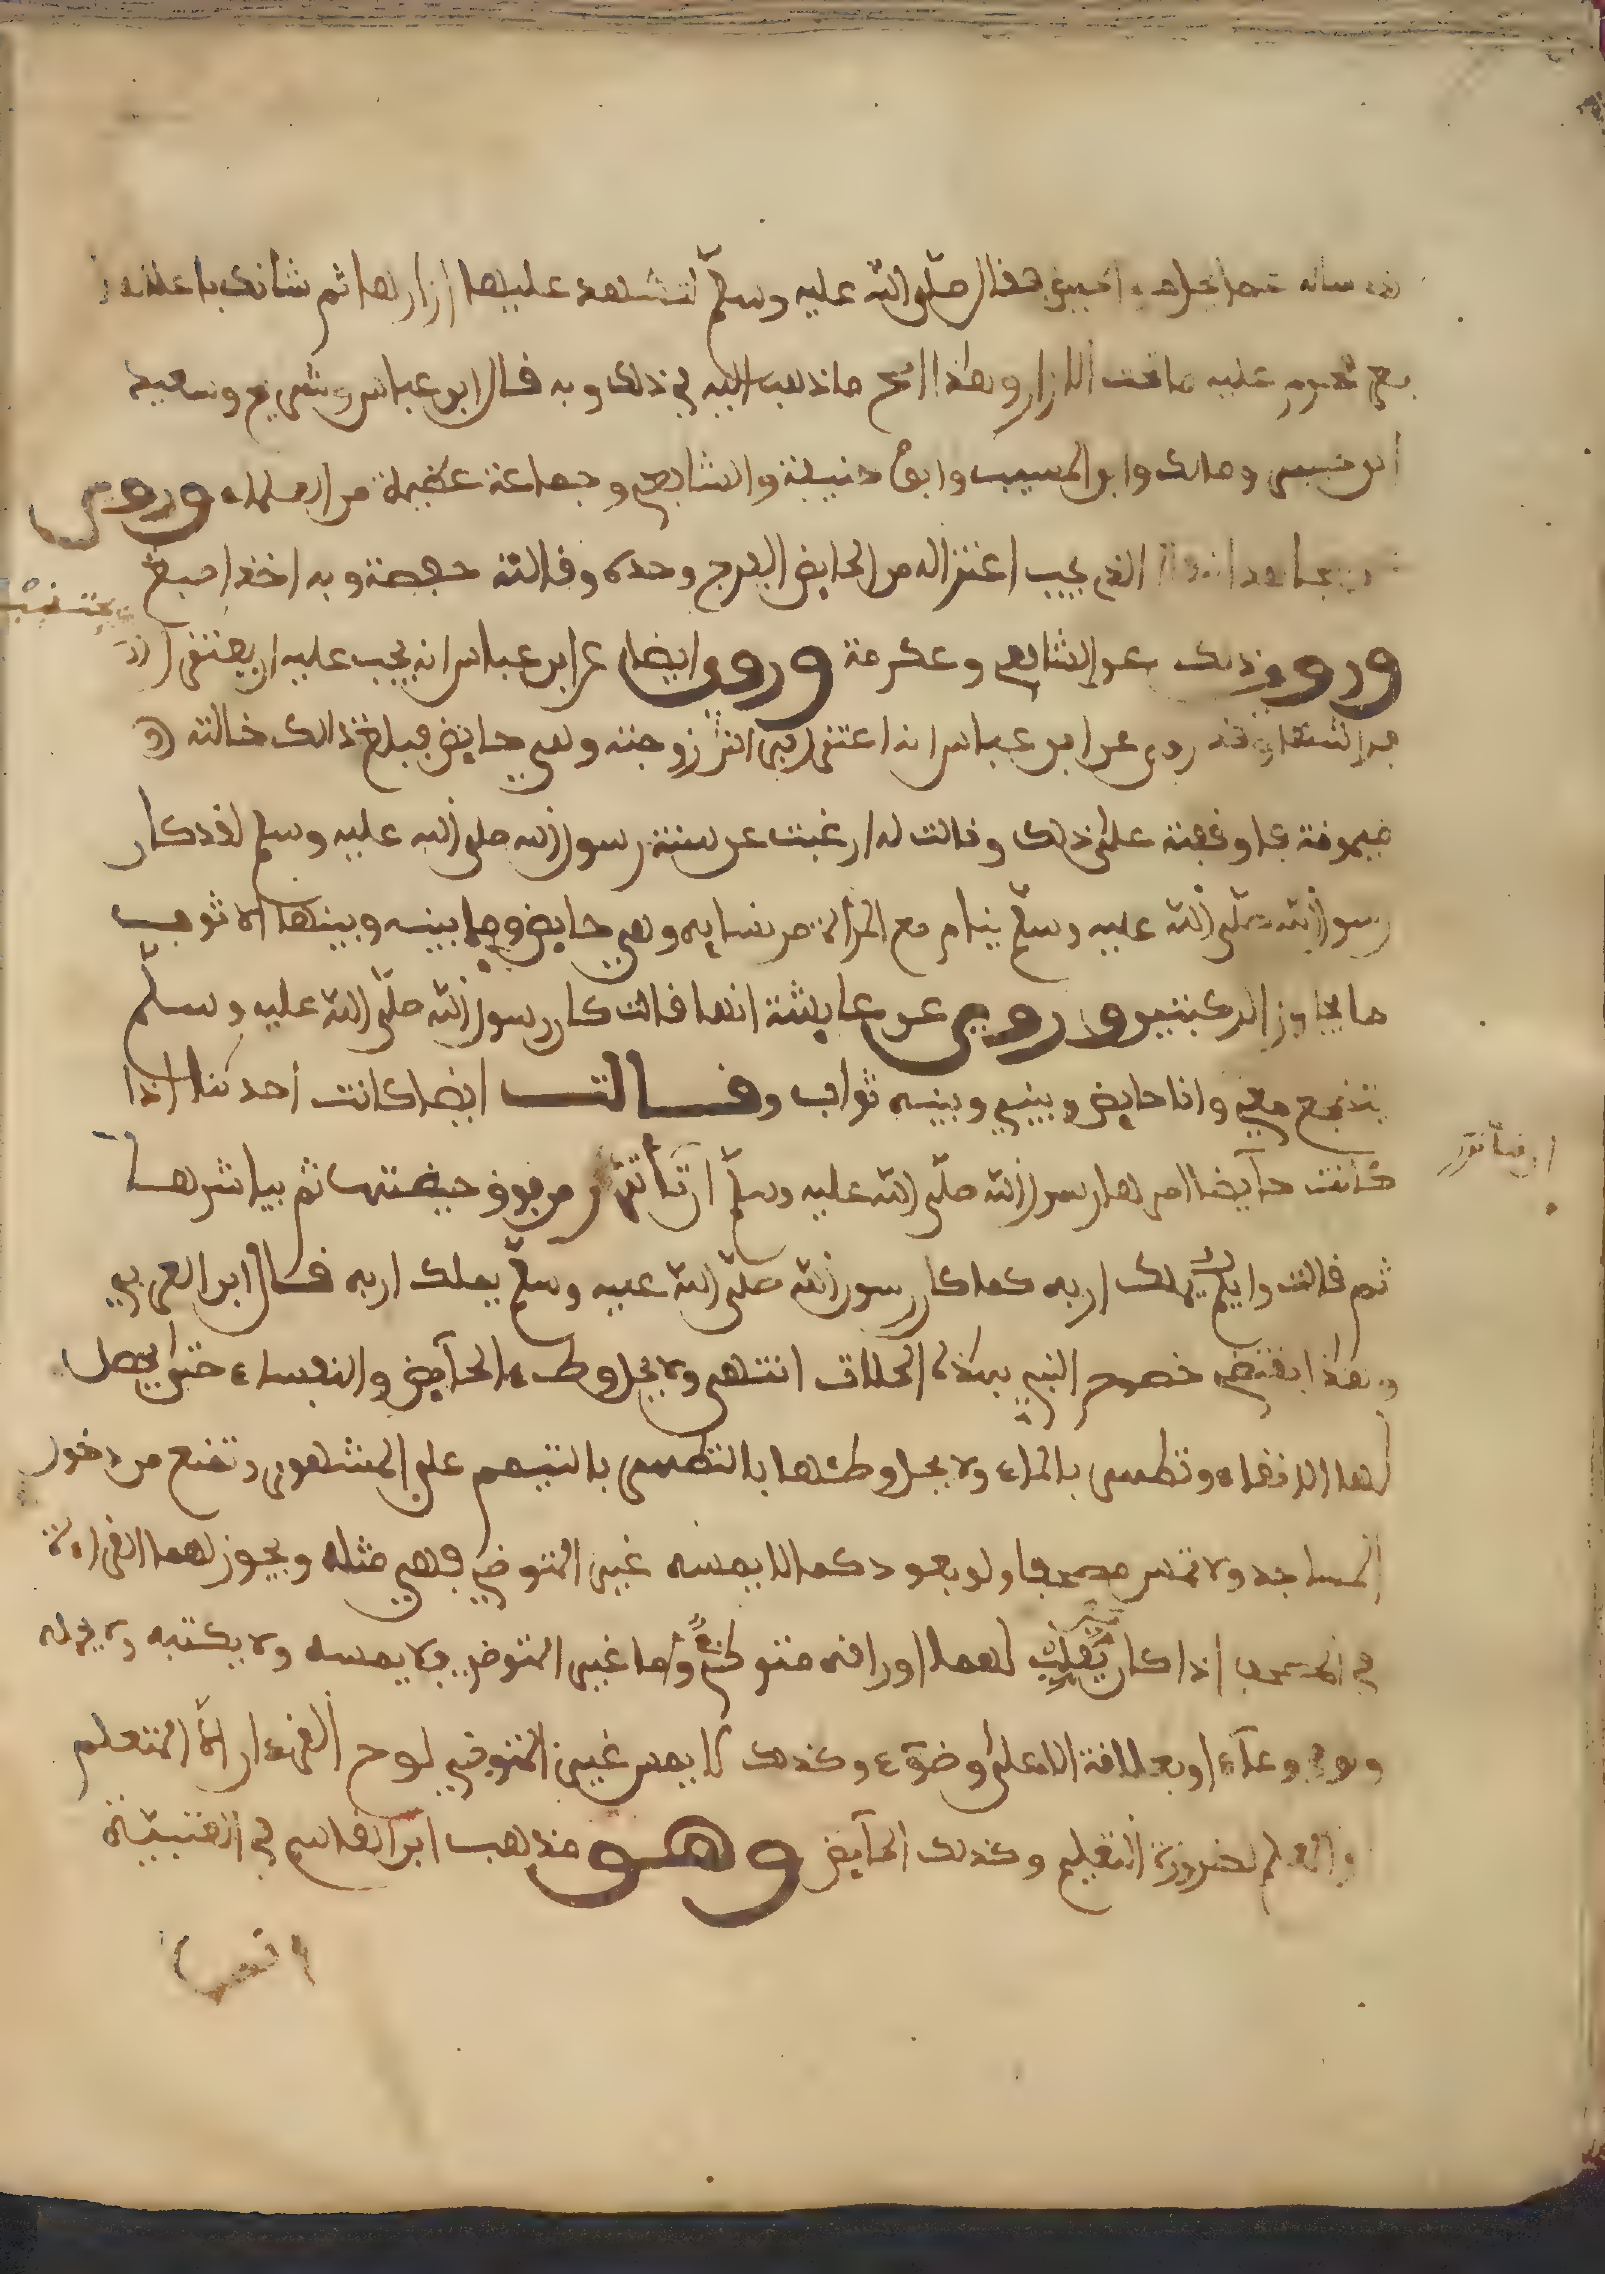 سأله عما يحل فقال صلى الله عليه وسلم لتشد عليها إزارها ثم شأنك باعلاها
عليه ما تحت الازار وهذا اصح ما ذهب اليه في ذلك وبه قال ابن عباس وشريح وسعيد
ومالك وابن المسيب وابو حنيفة والشافعي وجماعة عظيمة من العلماء وروي
مجاهد الذي يجب اعتزاله من الحايض الفرج وحده وقالته حفصة وبه اخذ اصبغ
وروي ذلك عن الشافعي وعكرمة وروي ايضا عن ابن عباس انه يجب عليه ان يعتزل
روي عن ابن عباس انه اعتزل فراش زوجته وهي حايض فبلغ ذالك خالته
ميمونة فجاء وقفته على ذلك وقالت له ارغبت عن سنة رسول الله صلى الله عليه وسلم لقد كان
رسول الله صلى الله عليه وسلم ينام مع المرأة من نسايه وهي حايض وما بينه وبينها الا ثوب
ما يجاوز الركبتين وروي عن عايشة انها قالت كان رسول الله صلى الله عليه وسلم
يضجع معي وانا حايض وبيني وبينه ثواب وقالت ايضا كانت احدنا اذا
كانت حآيضا امرها رسول الله صلى الله عليه وسلم ان تأتزر من فور حيضتها ثم يباشرها
ان تأتزر
ثم قالت وايكم يملك اربه كما كان رسول الله صلى الله عليه وسلم يملك اربه قال ابن العربي
وهذا يقتضي خصوص النبي بهذه الحالات انتهى ولا يجوز وطء الحآيض والنفساء حتى يحصل
لها النقاء وتطهر بالماء ولا يجوز وطئها بالتطهر بالتيمم على المشهور وتمنع من دخول
المساجد ولا تمس مصحفا ولو بعود كما لا يمسه غير المتوضي فهي مثله ويجوز لهما القراءة
في المصحف اذا كان يقلب لهما اوراقه متوضئ وأما غير المتوضي فلا يمسه ولا يكتبه ولا يحمله
ولو في وعآء او بعلاقة الا على وضوء وكذلك لا يمس غير المتوضي لوح القرءان الا المتعلم
والمعلم لضرورة التعليم وكذلك الحآيض وهو مذهب ابن القاسم في العتبية